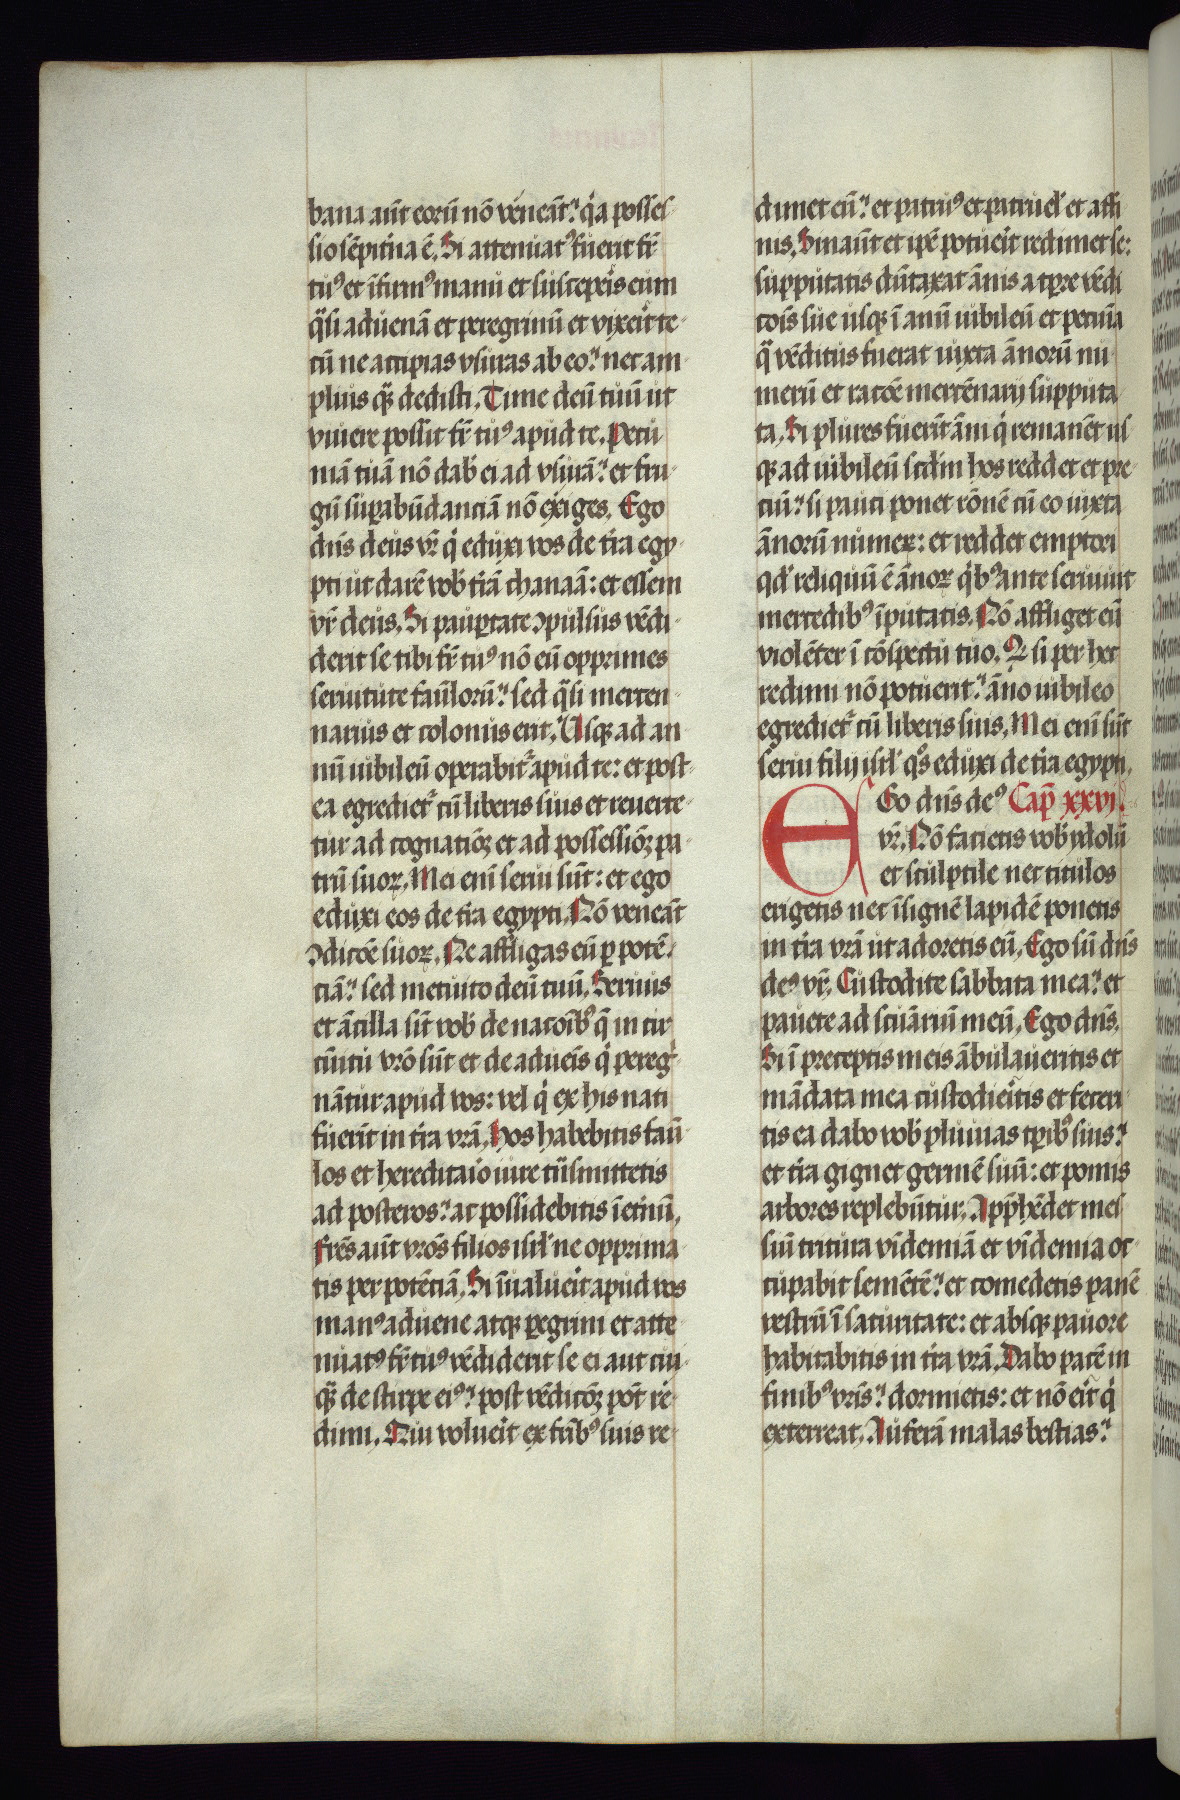 bana aūt eorū nō veneāt. q̇a posses
sio sēpit̄na ē. Si attenuat⁹ fuerit fr̄
tu⁹ et īfirm⁹ manu et suscep̄is eum
q̄si aduenā et peregrinū et vixerit te
cū ne accipias vsuras ab eo. nec am
plius q̄ dedisti. Time deū tuū ut
viuere possit fr̄ tu⁹ apud te. Pecu
niā tuā nō dab̄ ei ad vsurā. et fru
gū suꝑabūdanciā nō exiges. Ego
dn̄s deus vr̄ q̇ eduxi vos de tr̄a egy
pti ut darē vob̄ tr̄ā chanaā: et essem
vr̄ deus. Si pauꝑtate ꝯpulsus vēdi
derit se tibi fr̄ tu⁹ nō eū opprimes
seruitute famlorū. sed q̄si mercen
narius et colonus erit. Usqꝫ ad an
nū iubileū operabit᷑ apud te: et post
ea egrediet᷑ cū liberis suis et reuerte
tur ad cognatiōꝫ et ad possessiōꝫ pa
trū suoꝝ. Mei enī serui sūt: et ego
eduxi eos de tr̄a egypti. Nō veneāt
ꝯdicōe suoꝝ. Ne affligas eū ꝑ potē
ciā. sed metuito deū tuū. Seruus
et ācilla sīt vob̄ de nacōib⁹ q̄ in cir
cuitu vr̄o sūt et de aduēis q̇ pereg̓
nātur apud vos: vel q̇ ex his nati
fuerīt in tr̄a vr̄a. Hos habebitis famu
los et hereditaīo iure t̄nsmittetis
ad posteros. ac possidebitis ī et̄nū.
Fr̄es aūt vr̄os filios isr̄l ne opprima
tis per potēciā. Si īualuerit apud vos
man⁹ aduene atqꝫ ꝑegrini et atte
nuat⁹ fr̄ tu⁹ vēdiderit se ei aut cui
q̄ de stirpe ei⁹. post vēdicōꝫ pōt re
dimi. Qui voluerit ex fr̄ib⁹ suis re
dimet eū. et patru⁹ et patruel̓ et affi
nis. Sin aūt et ip̄e potuerit redimet se:
supputatis dūtaxat ānis a tp̄re vēdi
cōis sue usqꝫ ī annū iubileū et pecuīa
q̄ vēditus fuerat iuxta ānorū nu
merū et racōe mercēnarij supputa
ta. Si plures fuerīt āni q̇ remanēt us
qꝫ ad iubileū scd̄m hos reddet et pre
ciū. si pauci ponet rōnē cū eo iuxta
ānorū numeꝝ: et reddet emptori
qd̓ reliquū ē ānoꝝ q̇b⁹ ante seruiuit
mercedib⁹ īputatis. Nō affliget eū
violēter ī cōspectu tuo. Qꝫ si per hec
redimi nō potuerit. āno iubileo
egrediet᷑ cū liberis suis. Mei enī sūt
serui filij isr̄l qͦs eduxi de tr̄a egypti.
EGo dn̄s de⁹ Cap̄ xxvi.
vr̄. Nō facietis vob̄ ydolū
et sculptile nec titulos
erigetis nec īsignē lapidē ponetis
in tr̄a vr̄a ut adoretis eū. Ego sū dn̄s
de⁹ vr̄. Custodite sabbata mea. et
pauete ad sc̄uariū meū. Ego dn̄s.
Si ī preceptis meis ābulaueritis et
mādata mea custodieritis et feceri
tis ea dabo vob̄ pluuias tp̄ib⁹ suis.
et tr̄a gignet germē suū: et pomis
arbores replebūtur. App̄hēdet mes
siū tritura vīdemiā et vīdemia oc
cupabit semētē. et comedetis panē
vestrū ī saturitate: et absqꝫ pauore
habitabitis in tr̄a vr̄a. Dabo pacē in
finib⁹ vr̄is. dormietis: et nō erit q̇
exterreat. Auferā malas bestias.